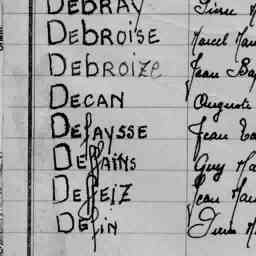 DEBRAY Pierre
DEBROISE Marcel
DEBROIZE Jean
DECAN Auguste
DEFAYSSE Jean
DEFFAINS Guy
DEFFEIZ Jean
DEFIN